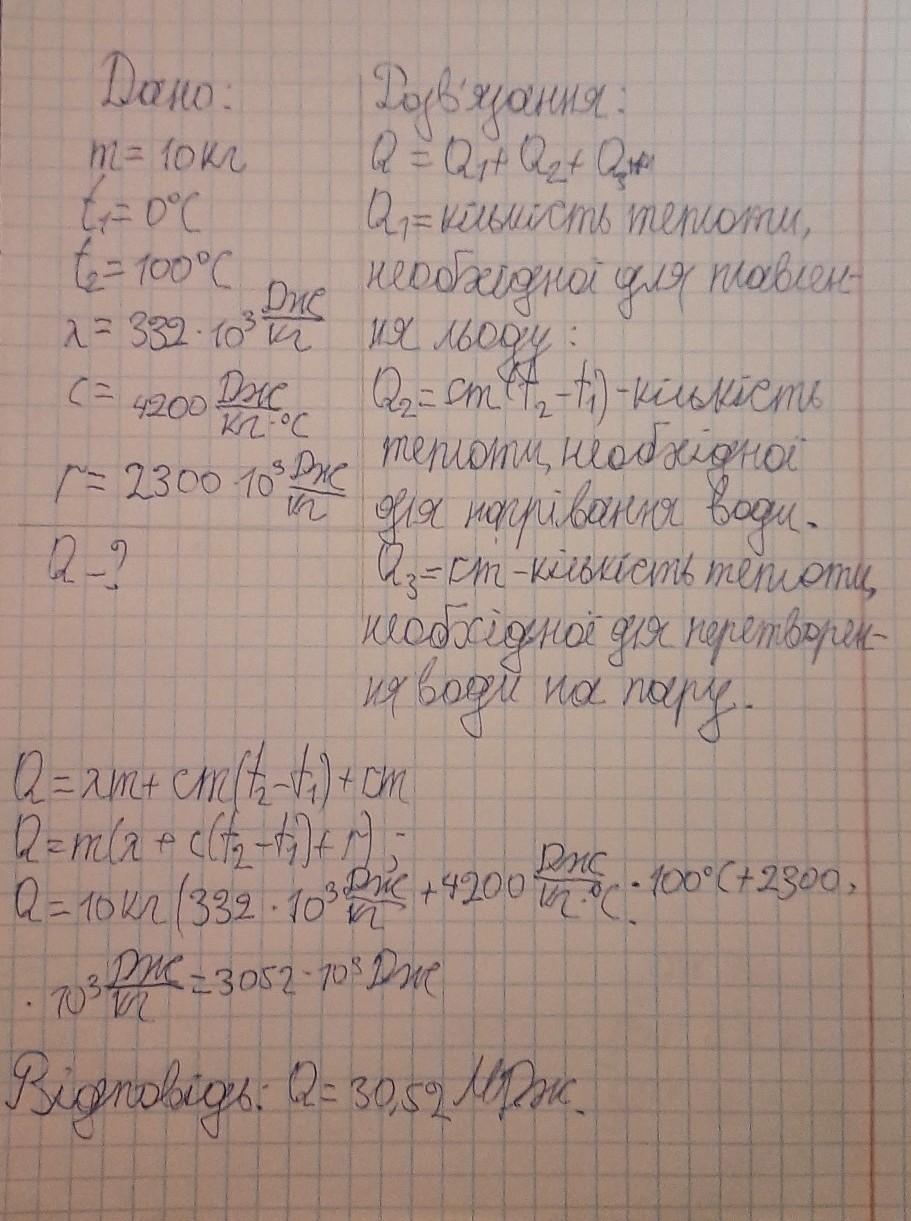 Дано:
m = 10 кг
t₁ = 0°C
t₂ = 100°C
λ = 332 · 10³ Дж/кг
c = 4200 Дж/кг·°C
r = 2300 · 10³ Дж/кг
Q - ?
Розв'язання:
Q = Q₁ + Q₂ + Q₃
Q₁ = кількість теплоти,
необхідної для плавлен-
ня льоду:
Q₂ = cm(t₂ - t₁) - кількість
теплоти, необхідної
для нагрівання води.
Q₃ = cm - кількість теплоти,
необхідної для перетворен-
ня води на пару.
Q = λm + cm(t₂ - t₁) + cm
Q = m(λ + c(t₂ - t₁) + r);
Q = 10 кг (332 · 10³ Дж/кг + 4200 Дж/кг·°C · 100°C + 2300 ·
· 10³ Дж/кг = 3052 · 10³ Дж
Відповідь: Q = 30,52 МДж.